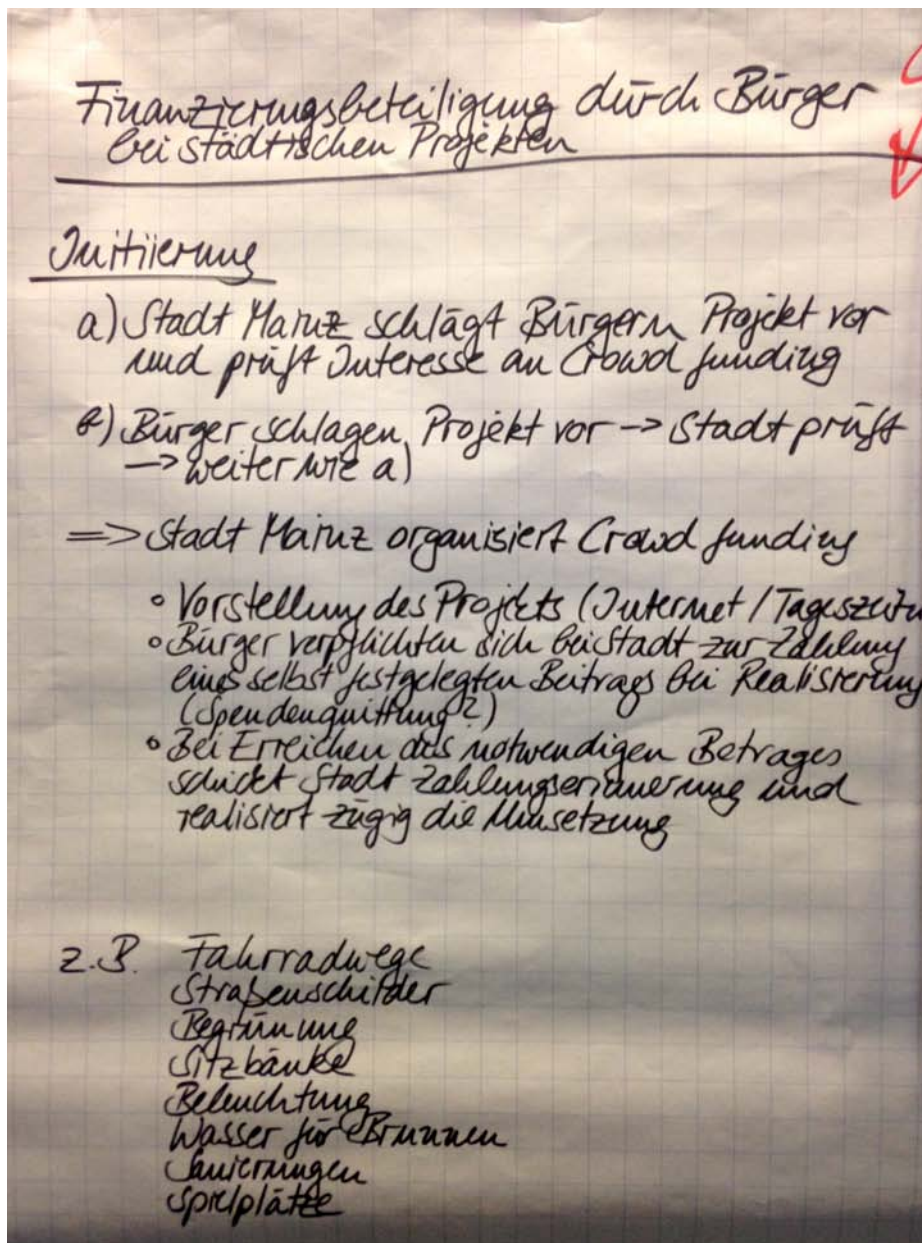 Finanzierungsbeteiligung durch Bürger
bei städtischen Projekten
Initiierung
a) Stadt Mainz schlägt Bürgern Projekt vor
und prüft Interesse an Crowd funding
b) Bürger schlagen Projekt vor -> Stadt prüft
-> weiter wie a)
=> Stadt Mainz organisiert Crowd funding
• Vorstellung des Projekts (Internet / Tageszeitu
• Bürger verpflichten sich bei Stadt zur Zahlung
eines selbst festgelegten Beitrags bei Realisierung
(Spendenquittung?)
• Bei Erreichen des notwendigen Betrages
schickt Stadt Zahlungserinnerung und
realisiert zügig die Umsetzung
z.B. Fahrradwege
Straßenschilder
Begrünung
Sitzbänke
Beleuchtung
Wasser für Brunnen
Sanierungen
Spielplätze